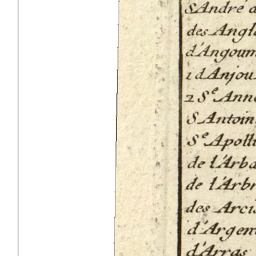 S André d
des Angl
d'Angoum
1 d'Anjou
2 Se Anne
S Antoin
Se Apoll
de l'Arba
de l'Arbr
des Arcis
d'Argent
d'Arras